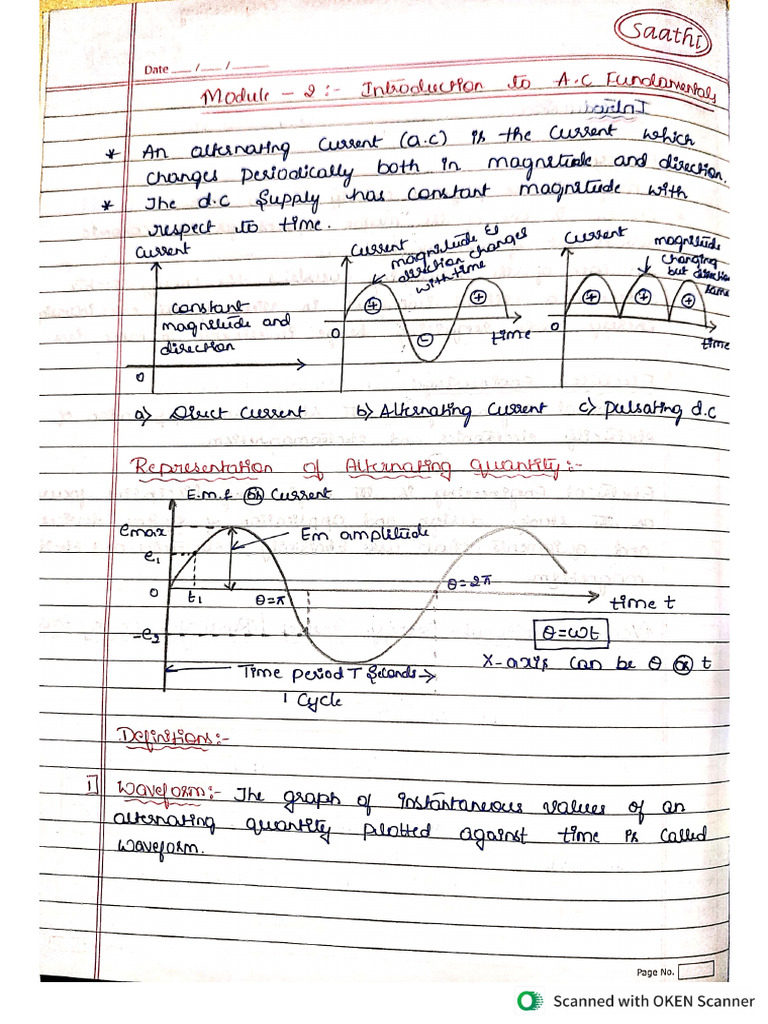 Saathi
Date __/__/____
Module - 2:- Introduction to A.C Fundamentals
* An alternating current (a.c) is the current which
changes periodically both in magnitude and direction.
* The d.c supply has constant magnitude with
respect to time.
Current
constant
magnitude and
direction
0
Current
magnitude &
direction changes
with time
+
-
+
0
time
Current
magnitude
changing
but direction
same
+
+
+
0
time
a) Direct current b) Alternating current c) pulsating d.c
Representation of Alternating quantity:-
E.m.f or Current
emax
Em amplitude
e1
0
t1
θ=π
θ=2π
time t
-e2
θ=ωt
X-axis can be θ or t
Time period T seconds
1 cycle
Definitions:-
1] Waveform:- The graph of instantaneous values of an
alternating quantity plotted against time is called
waveform.
Page No.
Scanned with OKEN Scanner